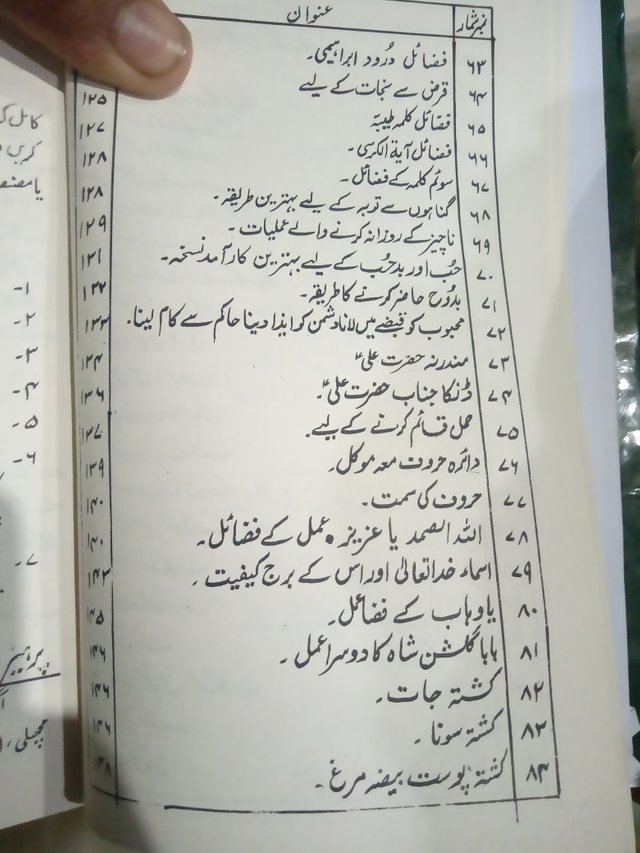 نمبر شمار عنوان
۶۳ فضائل دُرود ابراہیمی۔
۶۴ قرض سے نجات کے لیے ۱۲۵
۶۵ فضائل کلمہ طیبہ ۱۲۷
۶۶ فضائل آیة الکرسی۔ ۱۲۸
۶۷ سوئم کلمہ کے فضائل۔ ۱۲۸
۶۸ گناہوں سے توبہ کے لیے بہترین طریقہ۔ ۱۲۹
۶۹ ناچیز کے روزانہ کرنے والے عملیات۔ ۱۳۱
۷۰ حُب اور بدحُب کے لیے بہترین کارآمد نسخہ۔ ۱۳۲
۷۱ بدُوح حاضر کرنے کا طریقہ۔ ۱۳۳
۷۲ محبوب کو قبضے میں لانا دشمن کو ایذا دینا حاکم سے کام لینا۔
۷۳ مندرنہ حضرت علیؑ ۱۳۴
۷۴ ڈنکا جناب حضرت علیؑ۔ ۱۳۶
۷۵ حمل قائم کرنے کے لیے۔ ۱۳۷
۷۶ دائرہ حروف معہ موکل۔ ۱۳۹
۷۷ حروف کی سمت۔ ۱۴۰
۷۸ اللہ الصمد یا عزیز • عمل کے فضائل۔ ۱۴۰
۷۹ اسماء خدا تعالیٰ اور اس کے برج کیفیت۔ ۱۴۳
۸۰ یا وہاب کے فضائل۔ ۱۴۵
۸۱ بابا گلشن شاہ کا دوسرا عمل۔ ۱۴۶
۸۲ کشتہ جات۔ ۱۴۶
۸۳ کشتہ سونا۔ ۱۴۶
۸۴ کشتہ پوست بیضہ مرغ۔ ۱۴۸
کامل
کریں
۱-
۲-
۳-
۴-
۵-
۶-
۷-
پرہیز
مچھلی،